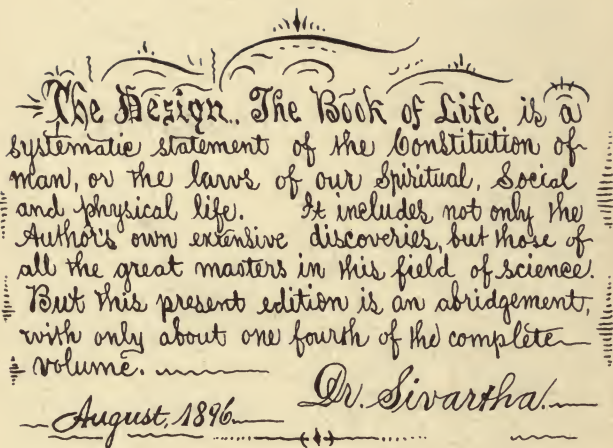 The Design. The Book of Life is a
systematic statement of the Constitution of
man, or the laws of our Spiritual, Social
and physical life. It includes not only the
Author's own extensive discoveries, but those of
all the great masters in this field of science.
But this present edition is an abridgement,
with only about one fourth of the complete
volume.
Dr. Sivartha.
August, 1896.